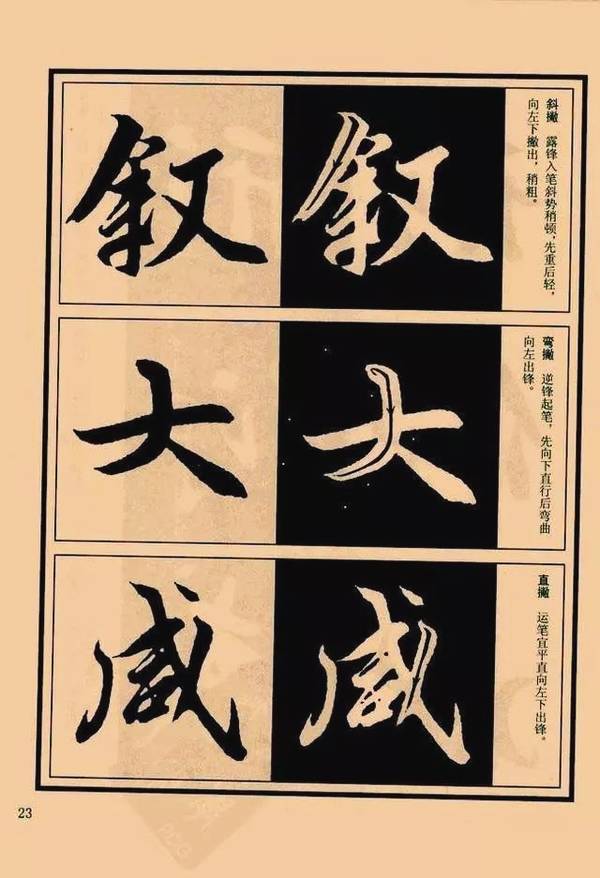 斜撇 露锋入笔斜势稍顿，先重后轻，
向左下撇出，稍粗。
叙
叙
弯撇 逆锋起笔，先向下直行后弯曲
向左出锋。
大
大
直撇 运笔宜平直向左下出锋。
咸
咸
23